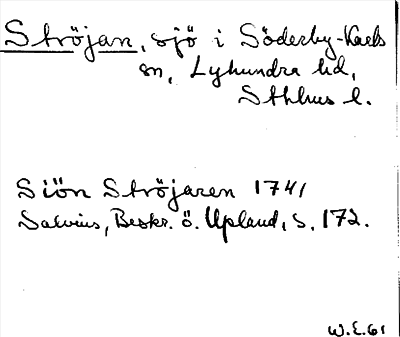 Ströjan, sjö i Söderby-Karls
sn, Lyhundra hd,
Sthlms l.
Siön Ströjaren 1741
Salvius, Beskr. ö. Upland, S. 172.
W.E.61